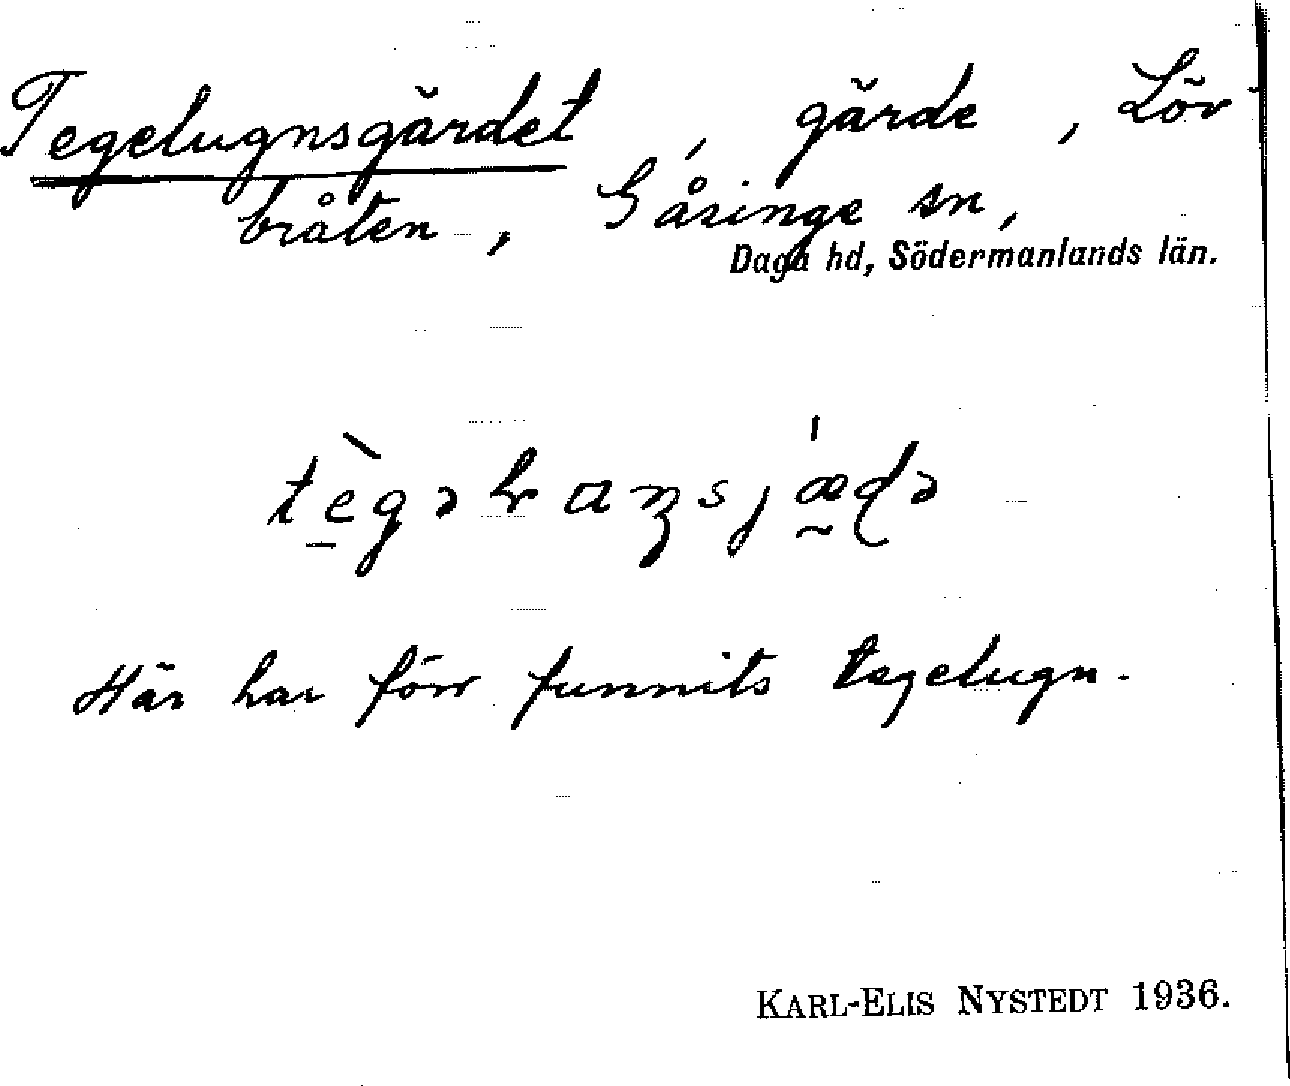 Tegelugnsgärdet, gärde, Löv-
bråten, Gåsinge sn,
Daga hd, Södermanlands län.
Här har förr funnits tegelugn.
KARL-ELIS NYSTEDT 1936.